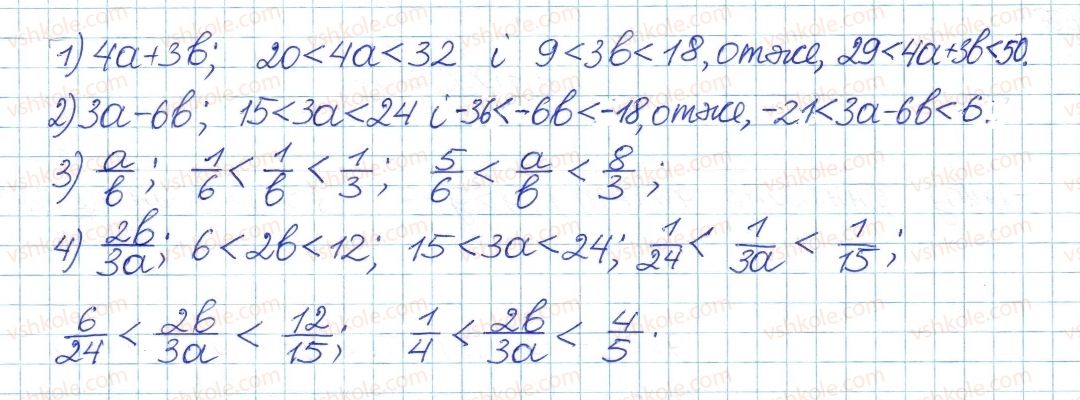 1) 4a+3b; 20<4a<32 і 9<3b<18, отже, 29<4a+3b<50.
2) 3a-6b; 15<3a<24 і -36<-6b<-18, отже, -21<3a-6b<6.
3) a/b; 1/6 < 1/b < 1/3; 5/6 < a/b < 8/3;
4) 2b/3a; 6<2b<12; 15<3a<24; 1/24 < 1/3a < 1/15;
6/24 < 2b/3a < 12/15; 1/4 < 2b/3a < 4/5.